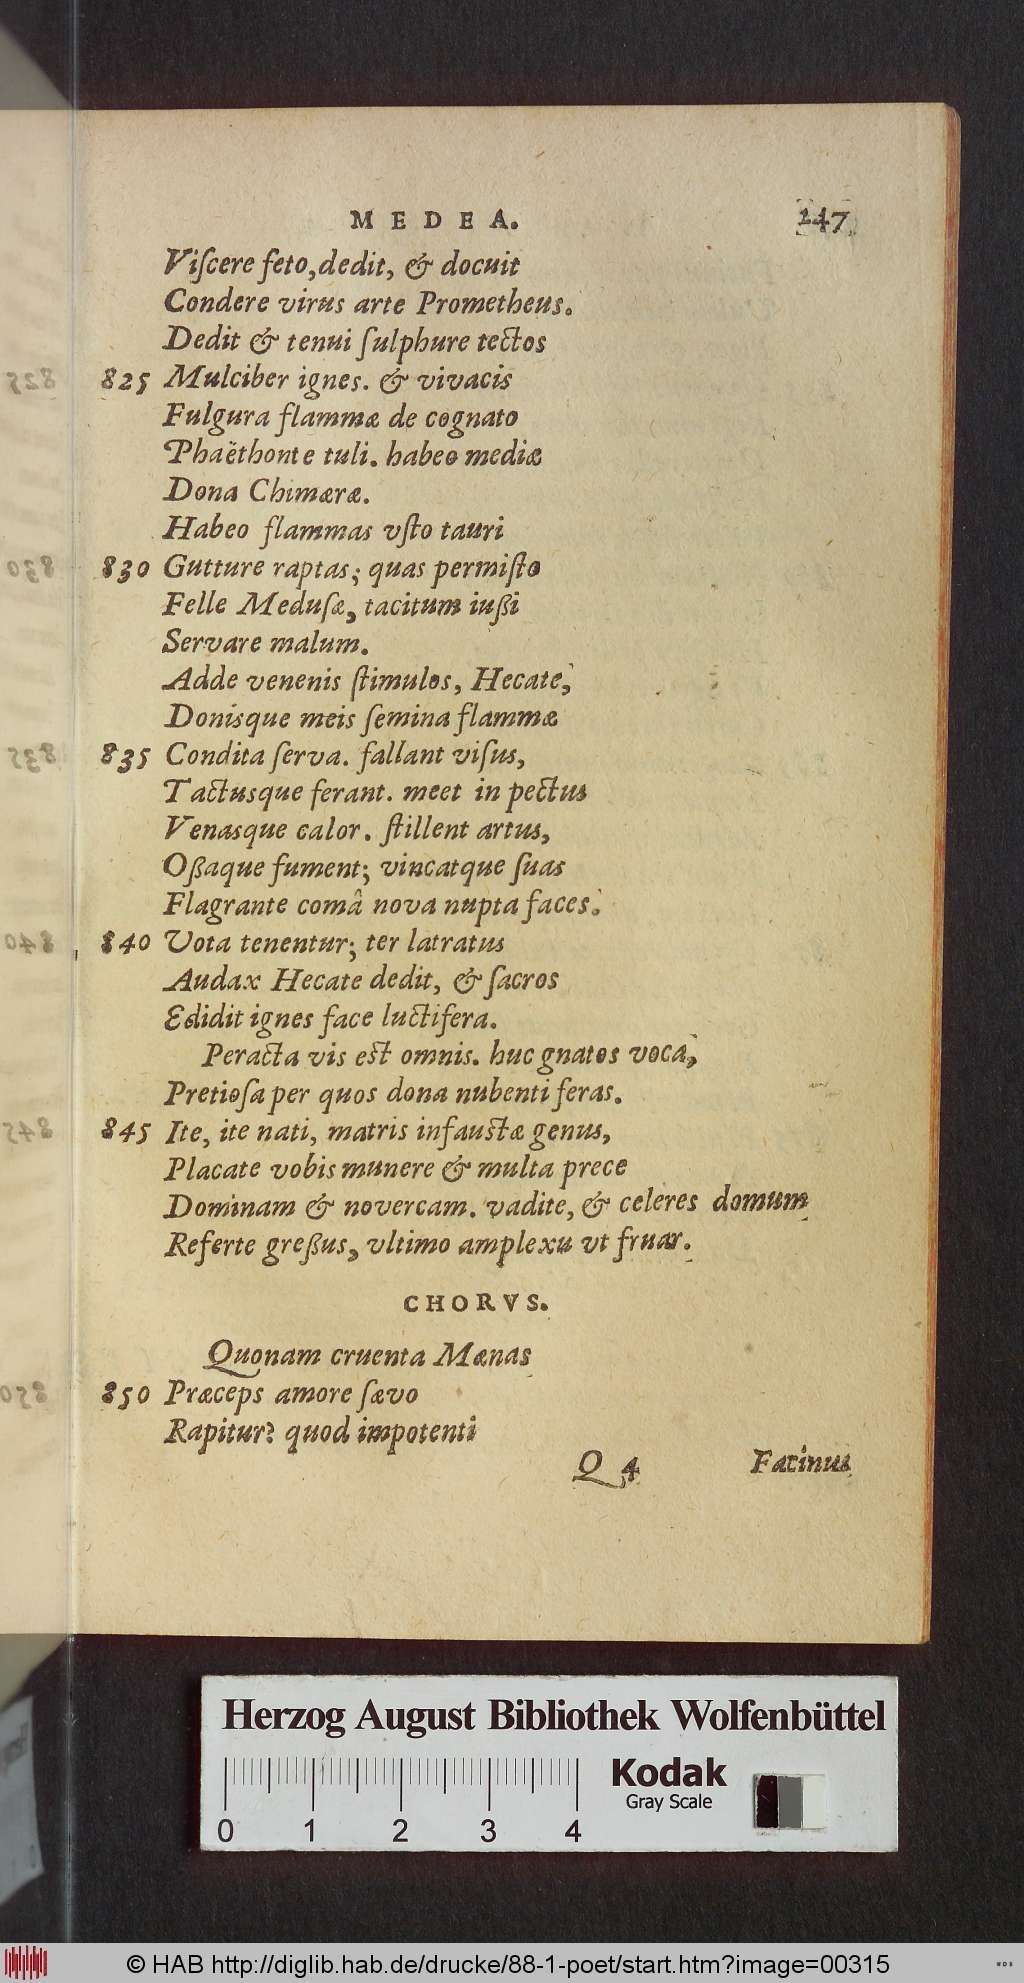 MEDEA. 247
Viſcere feto, dedit, & docuit
Condere virus arte Prometheus.
Dedit & tenui ſulphure tectos
825 Mulciber ignes. & vivacis
Fulgura flammæ de cognato
Phaëthonte tuli. habeo mediæ
Dona Chimæræ.
Habeo flammas vſto tauri
830 Gutture raptas; quas permiſto
Felle Meduſæ, tacitum iußi
Servare malum.
Adde venenis ſtimulos, Hecate,
Donisque meis ſemina flammæ
835 Condita ſerva. fallant viſus,
Tactusque ferant. meet in pectus
Venasque calor. ſtillent artus,
Oßaque fument; vincatque ſuas
Flagrante comâ nova nupta faces.
840 Vota tenentur; ter latratus
Audax Hecate dedit, & ſacros
Edidit ignes face luctifera.
Peracta vis est omnis. huc gnatos voca,
Pretioſa per quos dona nubenti feras.
845 Ite, ite nati, matris infaustæ genus,
Placate vobis munere & multa prece
Dominam & novercam. vadite, & celeres domum
Referte greßus, vltimo amplexu vt fruar.
CHORVS.
Quonam cruenta Mænas
850 Præceps amore ſævo
Rapitur? quod impotenti
Q 4 Facinus
Herzog August Bibliothek Wolfenbüttel
Kodak
Gray Scale
0 1 2 3 4
© HAB http://diglib.hab.de/drucke/88-1-poet/start.htm?image=00315